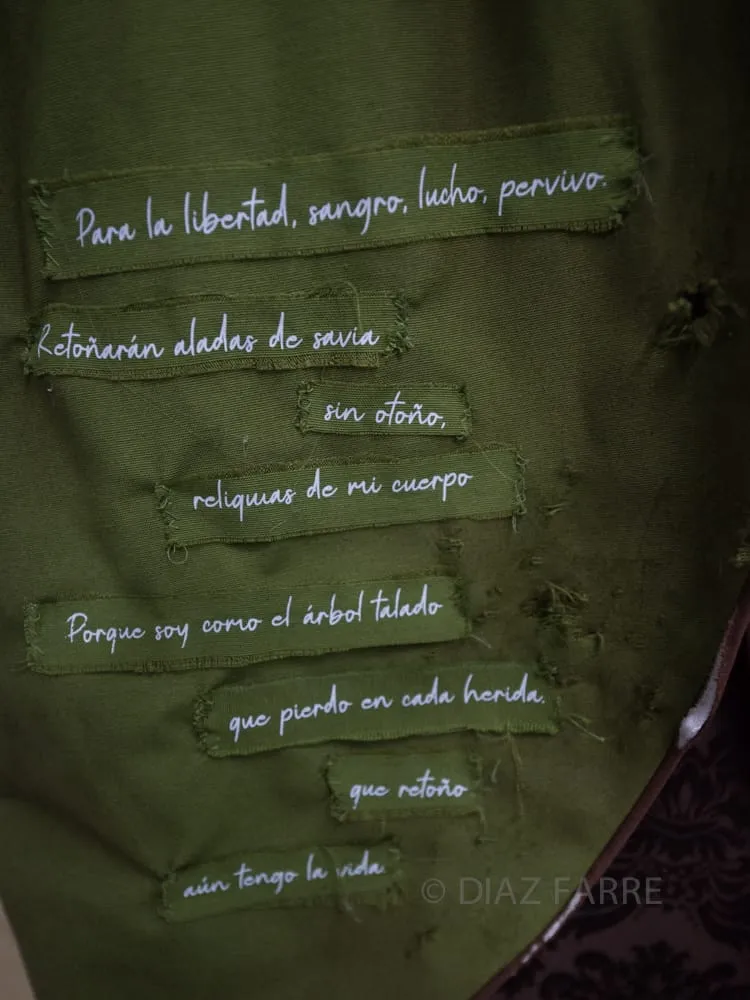 Para la libertad, sangro, lucho, pervivo.
Retoñarán aladas de savia
sin otoño,
reliquias de mi cuerpo
Porque soy como el árbol talado
que pierdo en cada herida.
que retoño
aún tengo la vida
© DIAZ FARRE